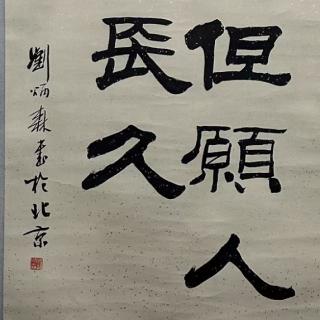 但願人
長久
劉炳森書於北京